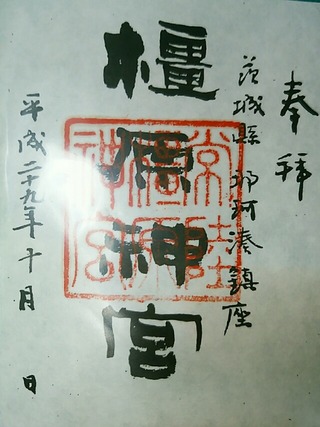 奉拝
茨城縣 那珂湊鎮座
橿原神宮
平成二十九年十月 日